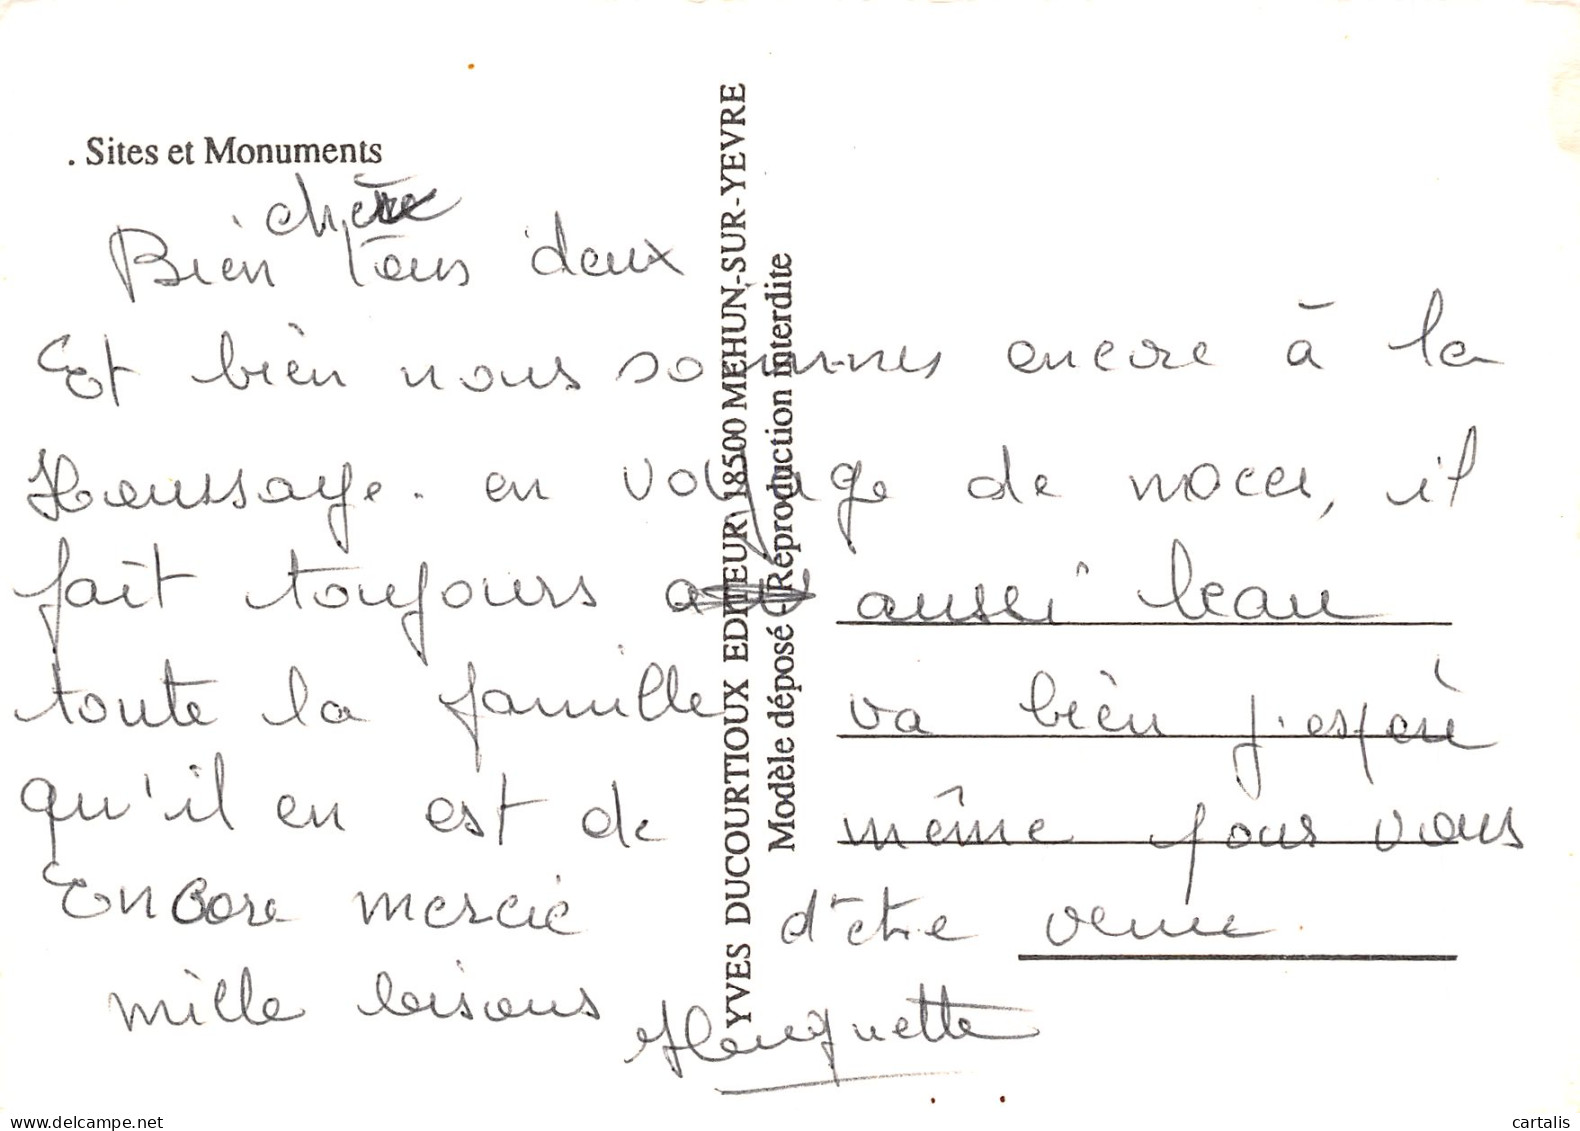 . Sites et Monuments
chère
Bien tous deux
Et bièn nous sommes encore à la
Houssaye. en voyage de noces, il
fait toujours aussi beau
toute la famille va bièn j'espère
qu'il en est de même pour vous
Encore mercie d'être venue.
mille bisous Huguette
YVES DUCOURTIOUX EDITEUR 18500 MEHUN-SUR-YEVRE
Modèle déposé - Réproduction interdite
www.delcampe.net
cartalis